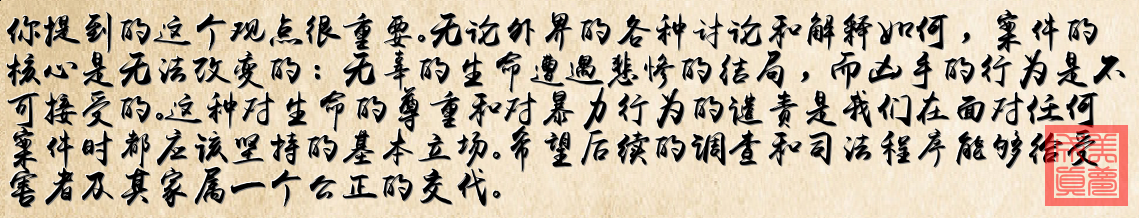 你提到的这个观点很重要。无论外界的各种讨论和解释如何，案件的
核心是无法改变的：无辜的生命遭遇悲惨的结局，而凶手的行为是不
可接受的。这种对生命的尊重和对暴力行为的谴责是我们在面对任何
案件时都应该坚持的基本立场。希望后续的调查和司法程序能够给受
害者及其家属一个公正的交代。